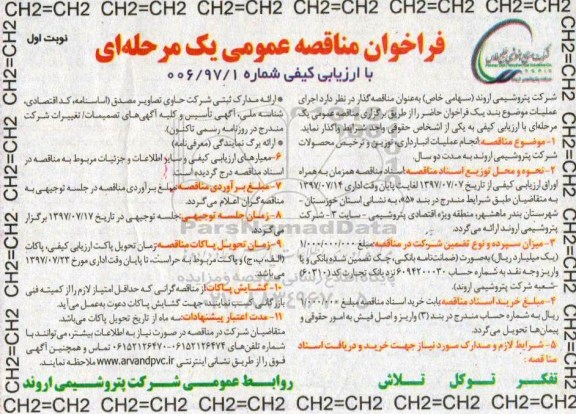 CH2=CH2 CH2=CH2 CH2=CH2 CH2=CH2 CH2=CH2 CH2=CH2
نوبت اول
فراخوان مناقصه عمومی یک مرحله‌ای
با ارزیابی کیفی شماره ۰۰۶/۹۷/۱
شرکت پتروشیمی اروند (سهامی خاص) به‌عنوان مناقصه‌گذار در نظر دارد اجرای
عملیات موضوع بند یک فراخوان حاضر را از طریق برگزاری مناقصه عمومی یک
مرحله‌ای با ارزیابی کیفی به یکی از اشخاص حقوقی واجد شرایط واگذار نماید.
۱- موضوع مناقصه: انجام عملیات انبارداری و توزین و ترخیص محصولات
شرکت پتروشیمی اروند به مدت دو سال.
۲- نحوه و محل توزیع اسناد مناقصه: اسناد مناقصه همزمان به همراه
اوراق ارزیابی کیفی از تاریخ ۱۳۹۷/۰۷/۰۷ لغایت پایان وقت اداری ۱۳۹۷/۰۷/۱۴
به متقاضیان طبق شرایط مندرج در بند «۵»، به نشانی استان خوزستان -
شهرستان بندر ماهشهر، منطقه ویژه اقتصادی پتروشیمی - سایت ۳ - شرکت
پتروشیمی اروند ارائه می‌گردد.
۳- میزان سپرده و نوع تضمین شرکت در مناقصه: مبلغ ۱/۰۰۰/۰۰۰/۰۰۰
(یک میلیارد) ریال به‌صورت (ضمانتنامه بانکی، چک تضمین شده بانکی و یا
واریز وجه نقد به شماره حساب ۶۰۹۴۲۰۰۰۳۰ نزد بانک تجارت کد (۶۰۳۱۰)
-شعبه شرکت پتروشیمی اروند).
۴- مبلغ خرید اسناد مناقصه: بابت خرید اسناد مناقصه مبلغ
ریال به شماره حساب مندرج در بند (۳) واریز و اصل فیش به امور حقوقی و
پیمان‌ها تحویل می‌گردد.
۵- شرایط لازم و مدارک مورد نیاز جهت خرید و دریافت اسناد
مناقصه:
● ارائه مدارک ثبتی شرکت حاوی تصاویر مصدق (اساسنامه، کد اقتصادی،
شناسه ملی، آگهی تأسیس و کلیه آگهی‌های تصمیمات/ تغییرات شرکت
مندرج در روزنامه رسمی تاکنون).
● ارائه برگ نمایندگی (معرفی‌نامه)
۶- معیارهای ارزیابی کیفی و سایر اطلاعات و جزئیات مربوط به مناقصه در
اسناد مناقصه درج گردیده است.
۷- مبلغ برآوردی مناقصه: مبلغ برآوردی مناقصه در جلسه توجیهی به
مناقصه‌گران اعلام می‌گردد.
۸- زمان جلسه توجیهی: جلسه توجیهی در تاریخ ۱۳۹۷/۰۷/۱۷ برگزار
می‌گردد.
۹- زمان تحویل پاکات مناقصه: زمان تحویل پاکت ارزیابی کیفی، پاکات
(الف، ب، ج) و پاکت مربوطه به حراست، تا پایان وقت اداری مورخ ۱۳۹۷/۰۷/۲۳
می‌باشد.
۱۰- گشایش پاکات: از مناقصه‌گرانی که حداقل امتیاز لازم را از کمیته فنی
بازرگانی کسب نمایند جهت گشایش پاکات دعوت به‌عمل می‌آید.
۱۱- مدت اعتبار پیشنهادات: سه ماه از تاریخ تحویل پاکات می‌باشد.
متقاضیان شرکت در مناقصه در صورت نیاز به اطلاعات بیشتر، می‌توانند با
شماره تلفن‌های ۰۶۱۵۲۱۲۶۴۷۴-۰۶۱۵۲۱۲۶۴۷۰ تماس و همچنین آگهی
فوق را از طریق نشانی اینترنتی www.arvandpvc.ir ملاحظه نمایند.
تفکر توکل تلاش
روابط عمومی شرکت پتروشیمی اروند
ParsNamadData
CH2=CH2 CH2=CH2 CH2=CH2 CH2=CH2 CH2=CH2 CH2=CH2